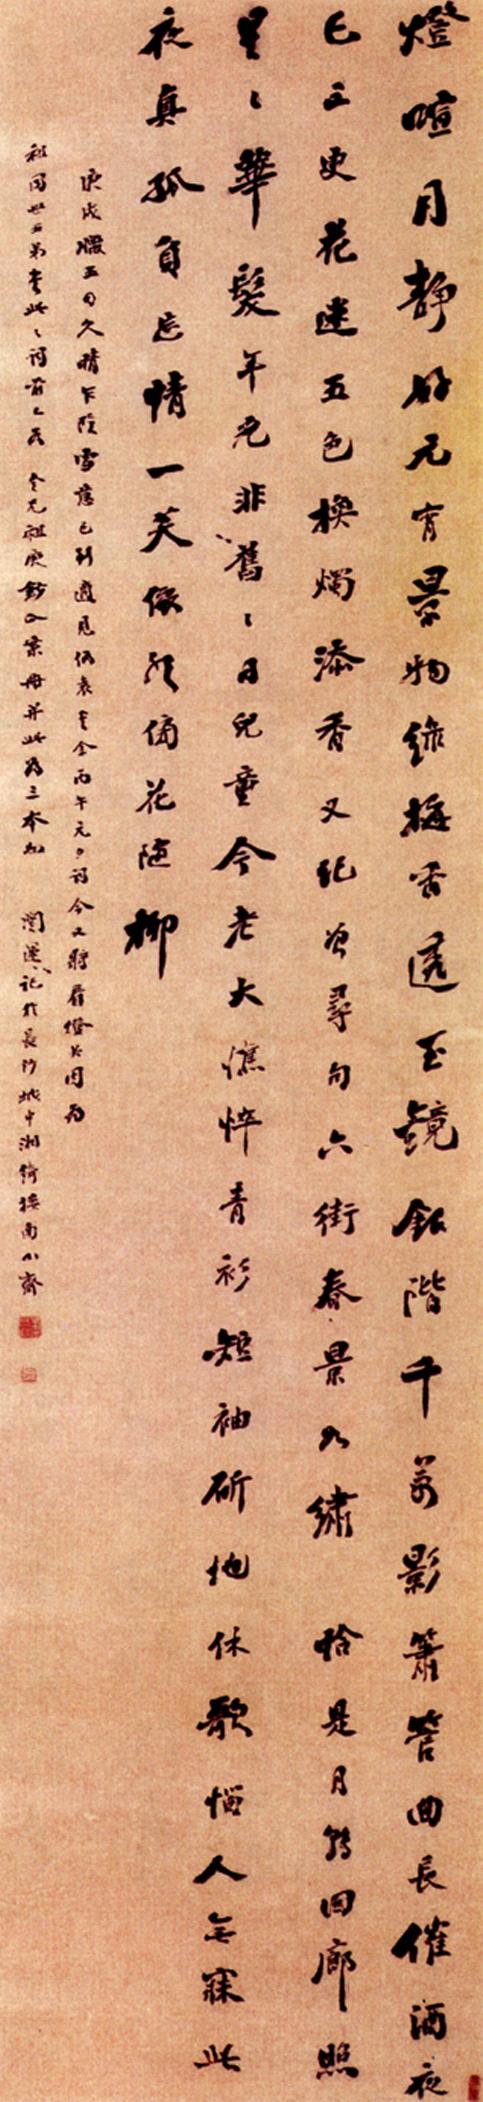 燈喧月靜好元宵景物綠梅香透玉鏡銀階千萬影簫管曲長催酒夜
已三更花迷五色換燭添香又絕曾尋句六街春景如繡 恰是月轉回廊照
星〻華髮年光非舊〻日兒童今老大憔悴青衫短袖斫地休歌惱人無寐此
夜真孤負忘情一笑傍花隨柳
庚戌臘五日久晴乍陰雪意已到適見伯袁書余丙午元夕詞今又將看燈矣因為
祖同世五弟書此〻詞前已為 令兄祖庚鈔入案冊并此為三本也 闓運記於長沙城中湘綺樓南小齋